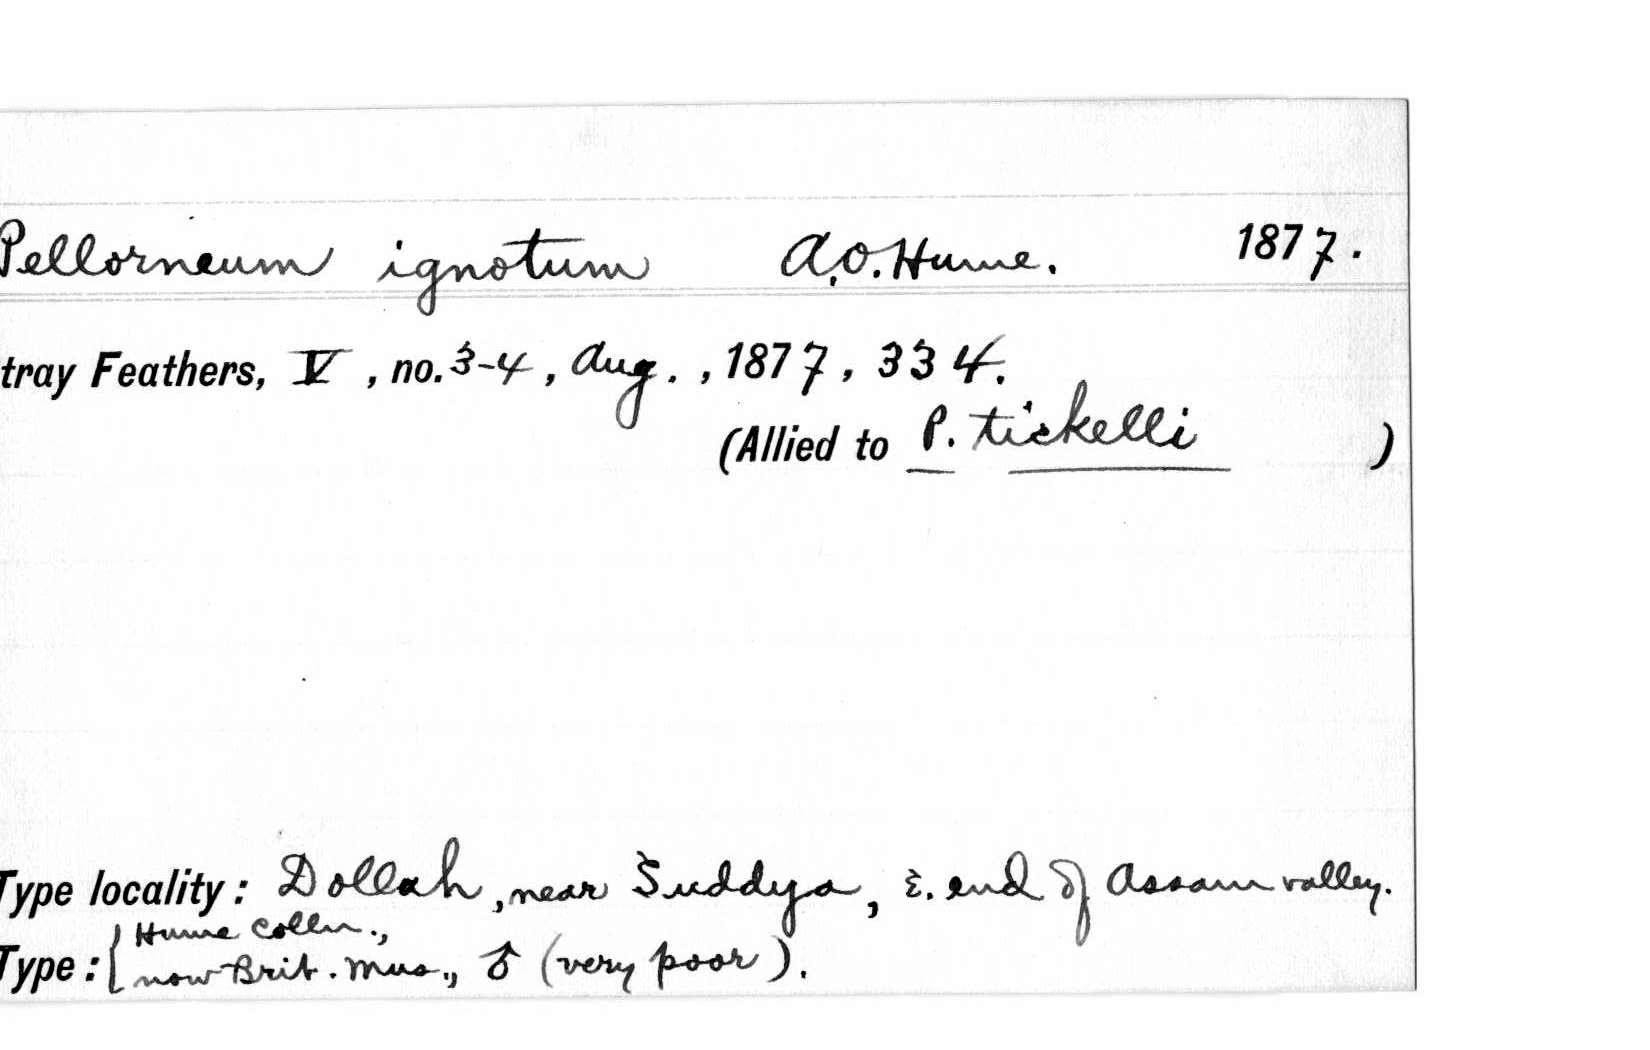 Pellorneum ignotum A.O. Hume. 1877.
tray Feathers, V, no. 3-4, Aug., 1877, 334.
(Allied to P. tickelli )
Type locality: Dollah, near Suddya, E. end of Assam valley.
Hume Colln.,
Type: { now Brit. Mus., ♂ (very poor).